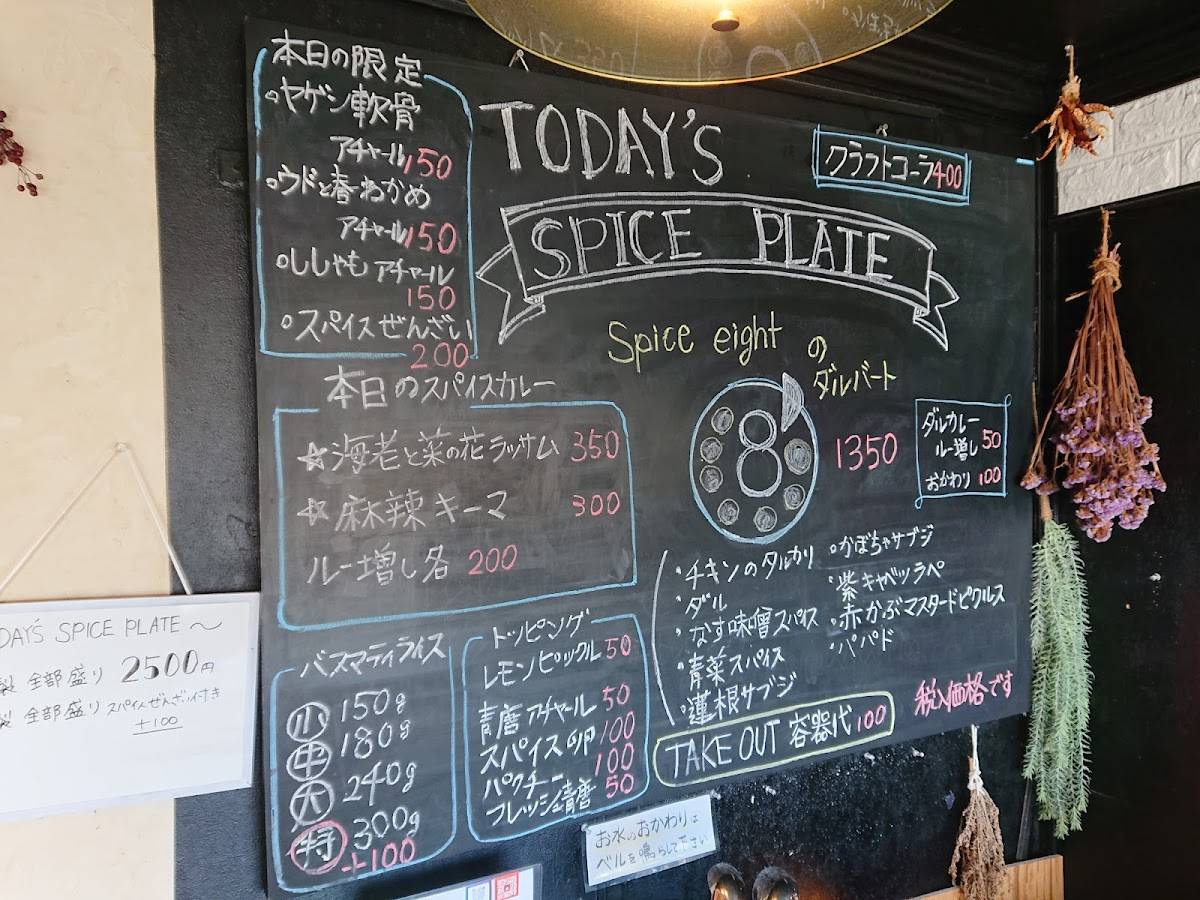 本日の限定
ヤゲン軟骨
アチャール150
ウドと春わかめ
アチャール150
ししゃもアチャール
150
スパイスぜんざい
200
TODAY'S
SPICE PLATE
クラフトコーラ400
Spice eight
の
ダルバート
8
1350
ダルカレー
ルー増し50
おかわり100
本日のスパイスカレー
☆海老と菜の花ラッサム 350
☆麻辣キーマ 300
ルー増し各 200
・チキンのタルカリ
・ダル
・なす味噌スパイス
・青菜スパイス
・蓮根サブジ
・かぼちゃサブジ
・紫キャベツラペ
・赤かぶマスタードピクルス
・パパド
税込価格です
TAKE OUT 容器代100
バスマティライス
小 150g
中 180g
大 240g
特 300g
+100
トッピング
レモンピックル 50
青唐アチャール 50
スパイス卵 100
パクチー 100
フレッシュ青唐 50
DAY'S SPICE PLATE～
製 全部盛り 2500円
製 全部盛り スパイスぜんざい付き
+100
お水のおかわりは
ベルを鳴らして下さい